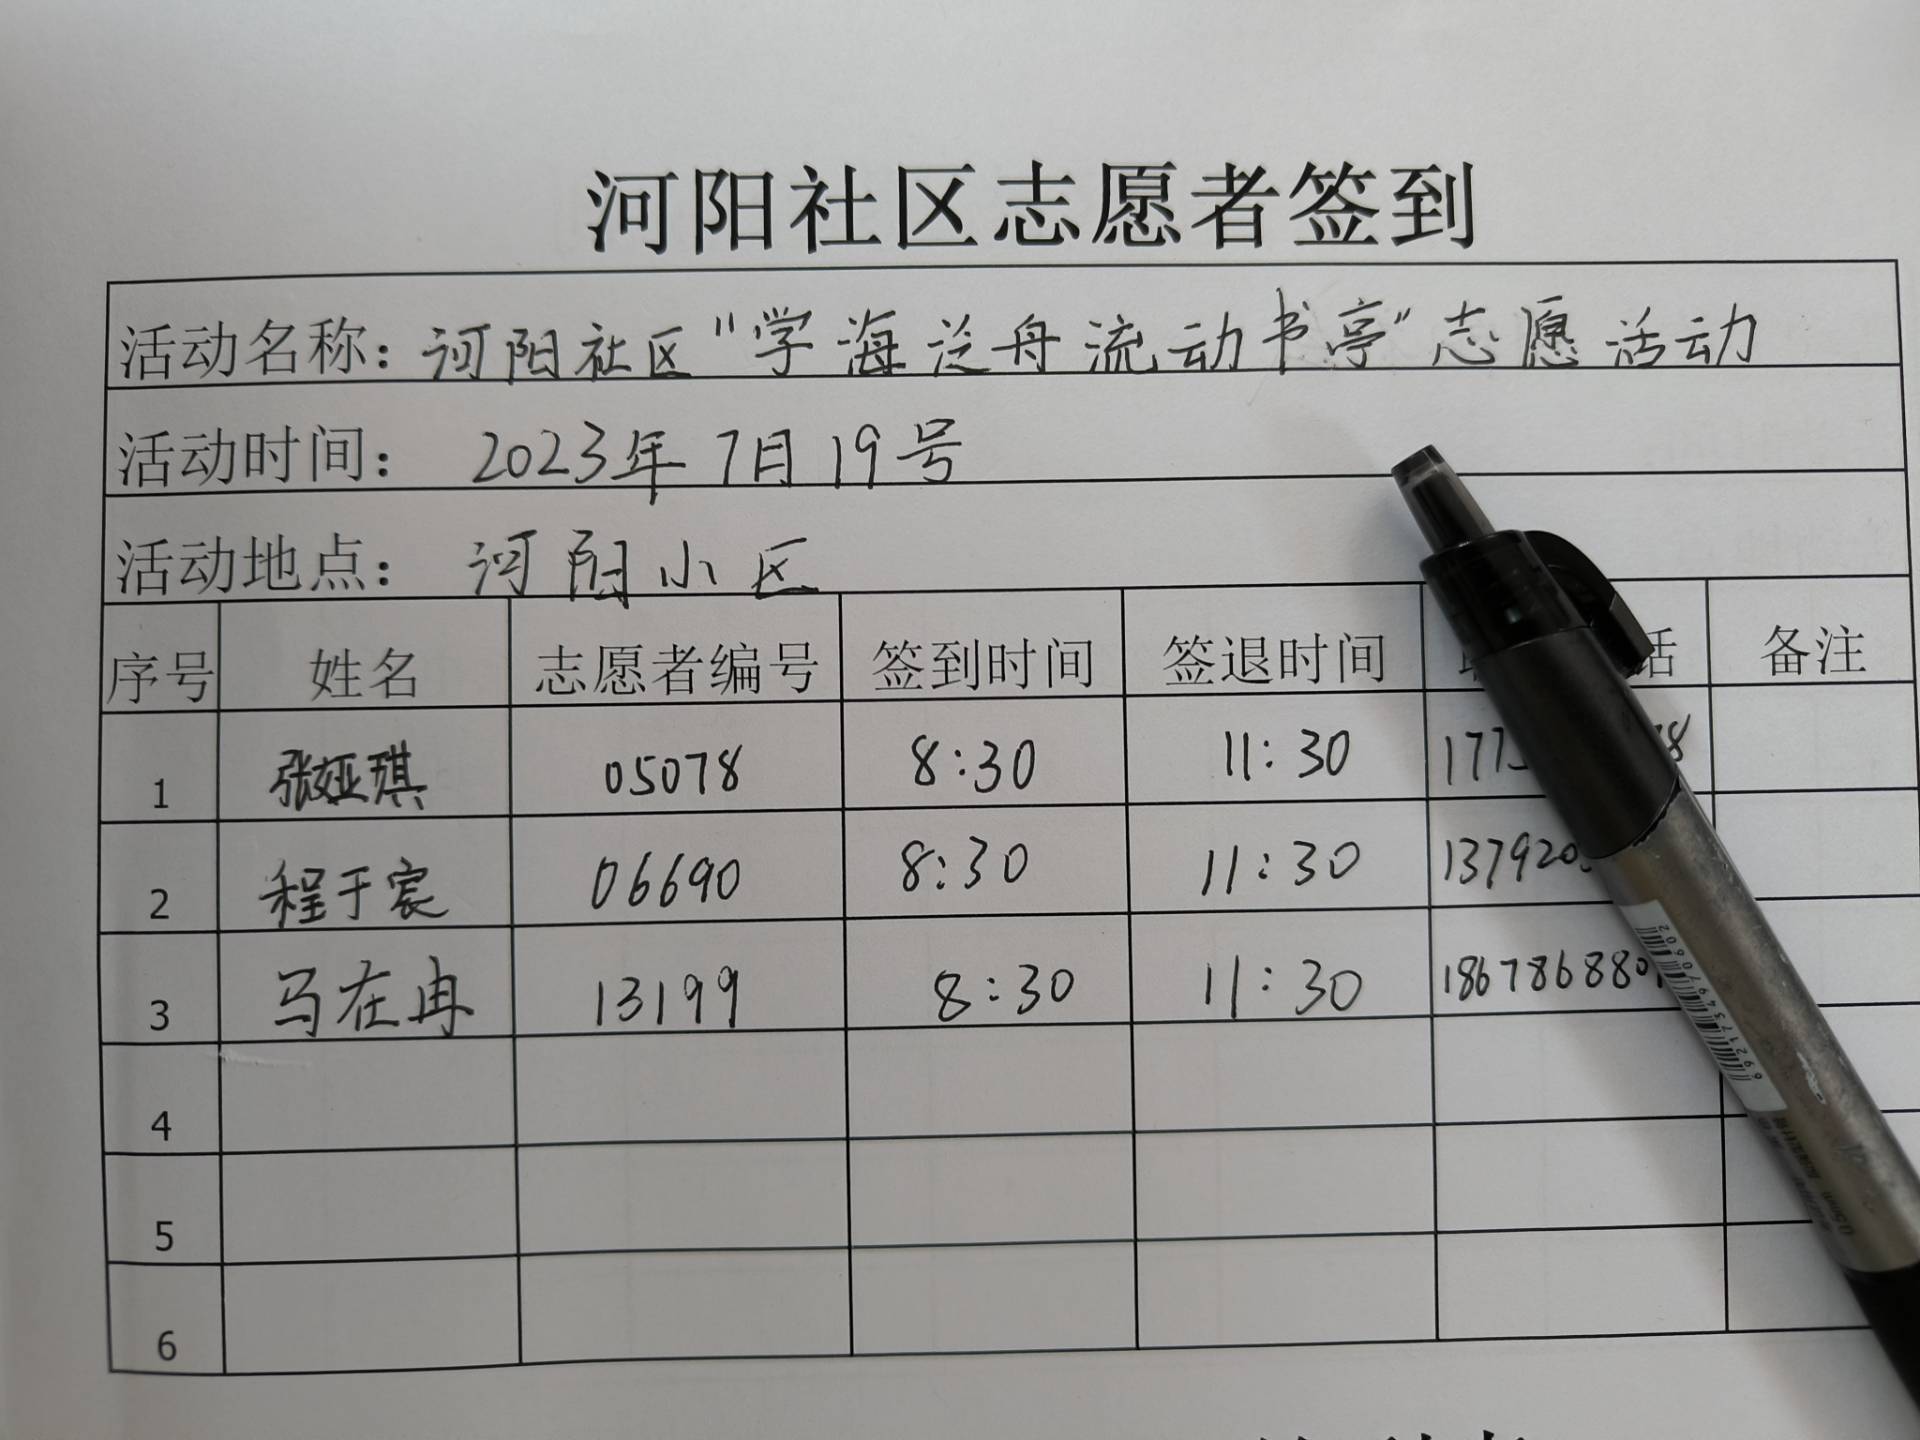 河阳社区志愿者签到
活动名称：河阳社区"学海泛舟流动书亭"志愿活动
活动时间： 2023年7月19号
活动地点： 河阳小区
序号 姓名 志愿者编号 签到时间 签退时间 话 备注
1 张娅琪 05078 8:30 11:30 177
2 程于宸 06690 8:30 11:30 13792
3 马在冉 13199 8:30 11:30 186786880
4
5
6